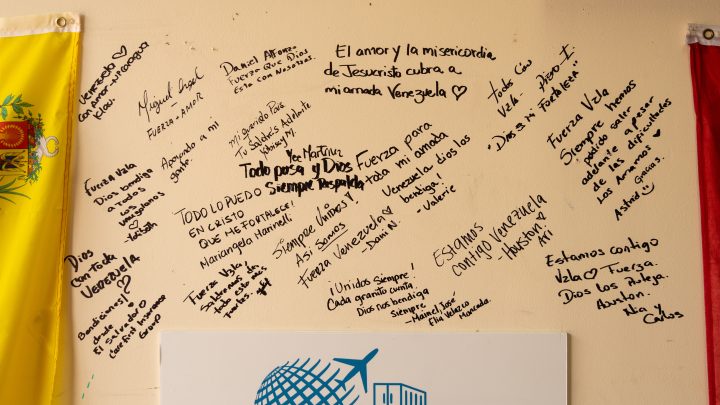 Venezuela ♡
Con Amor-Nicaragua
Klau.
Miguel Angel
FUERZA - AMOR
Daniel Alfonzo
Fuerza Que Dios
Esta Con Nosotros.
El amor y la misericordia
de Jesucristo cubra a
mi amada Venezuela ♡
Todo Con
Vzla-
Diero-I.
"Dios es mi Fortaleza"
Fuerza Vzla
Siempre hemos
podido salir
adelante a pesar
de las dificultades
Los Amamos ♡
Gracias.
Astrid
Apoyando a mi
gente.
Mi querido Pais
Tu Saldrás Adelante
Yee Martinez
Todo pasa y Dios
Siempre Respalda
Fuerza para
toda mi amada
Venezuela dios los
bendiga!
- Valerie
Fuerza Vzla
Dios bendiga
a todos
los
venezolanos
TODO LO PUEDO
EN CRISTO
QUE ME FORTALECE!
Mariangela
Siempre Unidos!
Asi Somos
Fuerza Venezuela ♡
- Dani N.
Estamos
contigo Venezuela
- Houston.
Ari
Dios
con toda
VENEZUELA
Bendiciones!
desde
El salvador
Carefirst insurance
Group
Fuerza Vzla,
Saldremos de
todo esto más
fuertes.
¡Unidos Siempre!
Cada granito cuenta.
Dios nos bendiga
siempre
- Mainel, José
Elia Velazco Moncada.
Estamos contigo
Vzla ♡ Fuerza.
Dios los Proteja.
Houston.
Ida y
Carlos